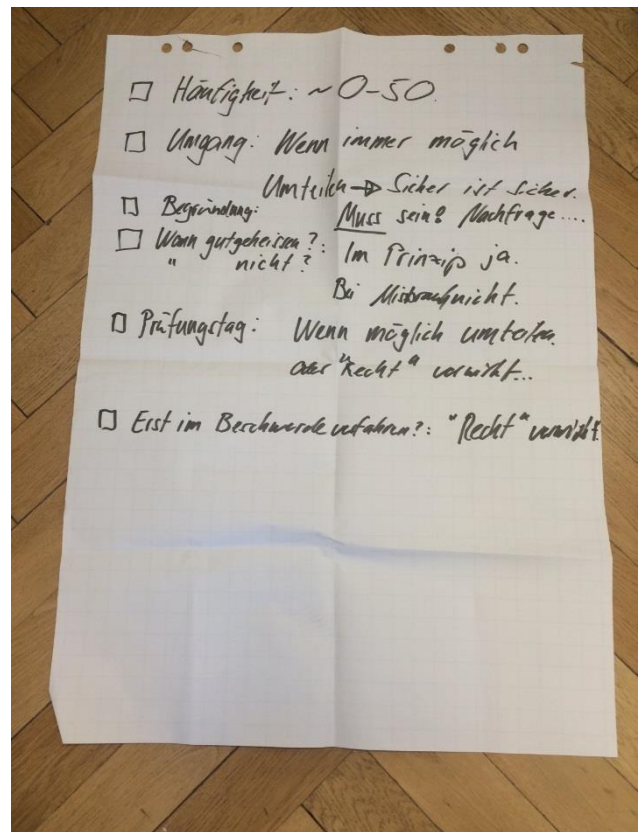 Häufigkeit: ~ 0-50.
Umgang: Wenn immer möglich
Umteilen → Sicher ist sicher.
Begründung: Muss sein? Nachfrage....
Wann gutgeheissen?: Im Prinzip ja.
" nicht? Bei Missbrauch nicht.
Prüfungstag: Wenn möglich umteilen.
oder "Recht" verwirkt...
Erst im Beschwerdeverfahren?: "Recht" verwirkt.